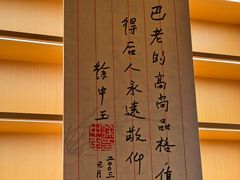 巴老的高尚品格值
得后人永远敬仰
徐中玉
二〇〇三
元月